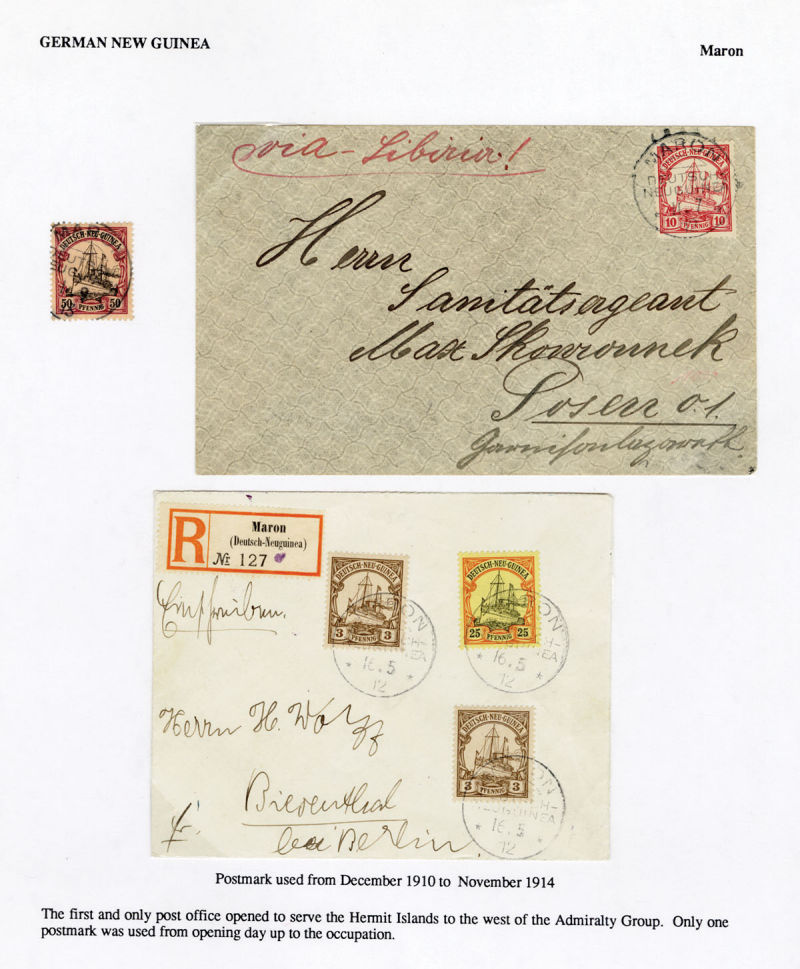 GERMAN NEW GUINEA
Maron
via - Sibirien!
MARON
DEUTSCH-
NEUGUINEA
DEUTSCH-NEU-GUINEA
10 PFENNIG 10
DEUTSCH-NEU-GUINEA
50 PFENNIG 50
Herrn
Sanitätsergeant
Max Skowronnek
Posen O.1.
Garnisonlazareth.
R
Maron
(Deutsch-Neuguinea)
№ 127
Einschreiben.
DEUTSCH-NEU-GUINEA
3 PFENNIG 3
DEUTSCH-NEU-GUINEA
25 PFENNIG 25
16.5
12
16.5
12
Herrn H. Wolff
DEUTSCH-NEU-GUINEA
3 PFENNIG 3
Biesenthal
bei Berlin
NEUGUINEA
16.5
12
Postmark used from December 1910 to November 1914
The first and only post office opened to serve the Hermit Islands to the west of the Admiralty Group. Only one
postmark was used from opening day up to the occupation.